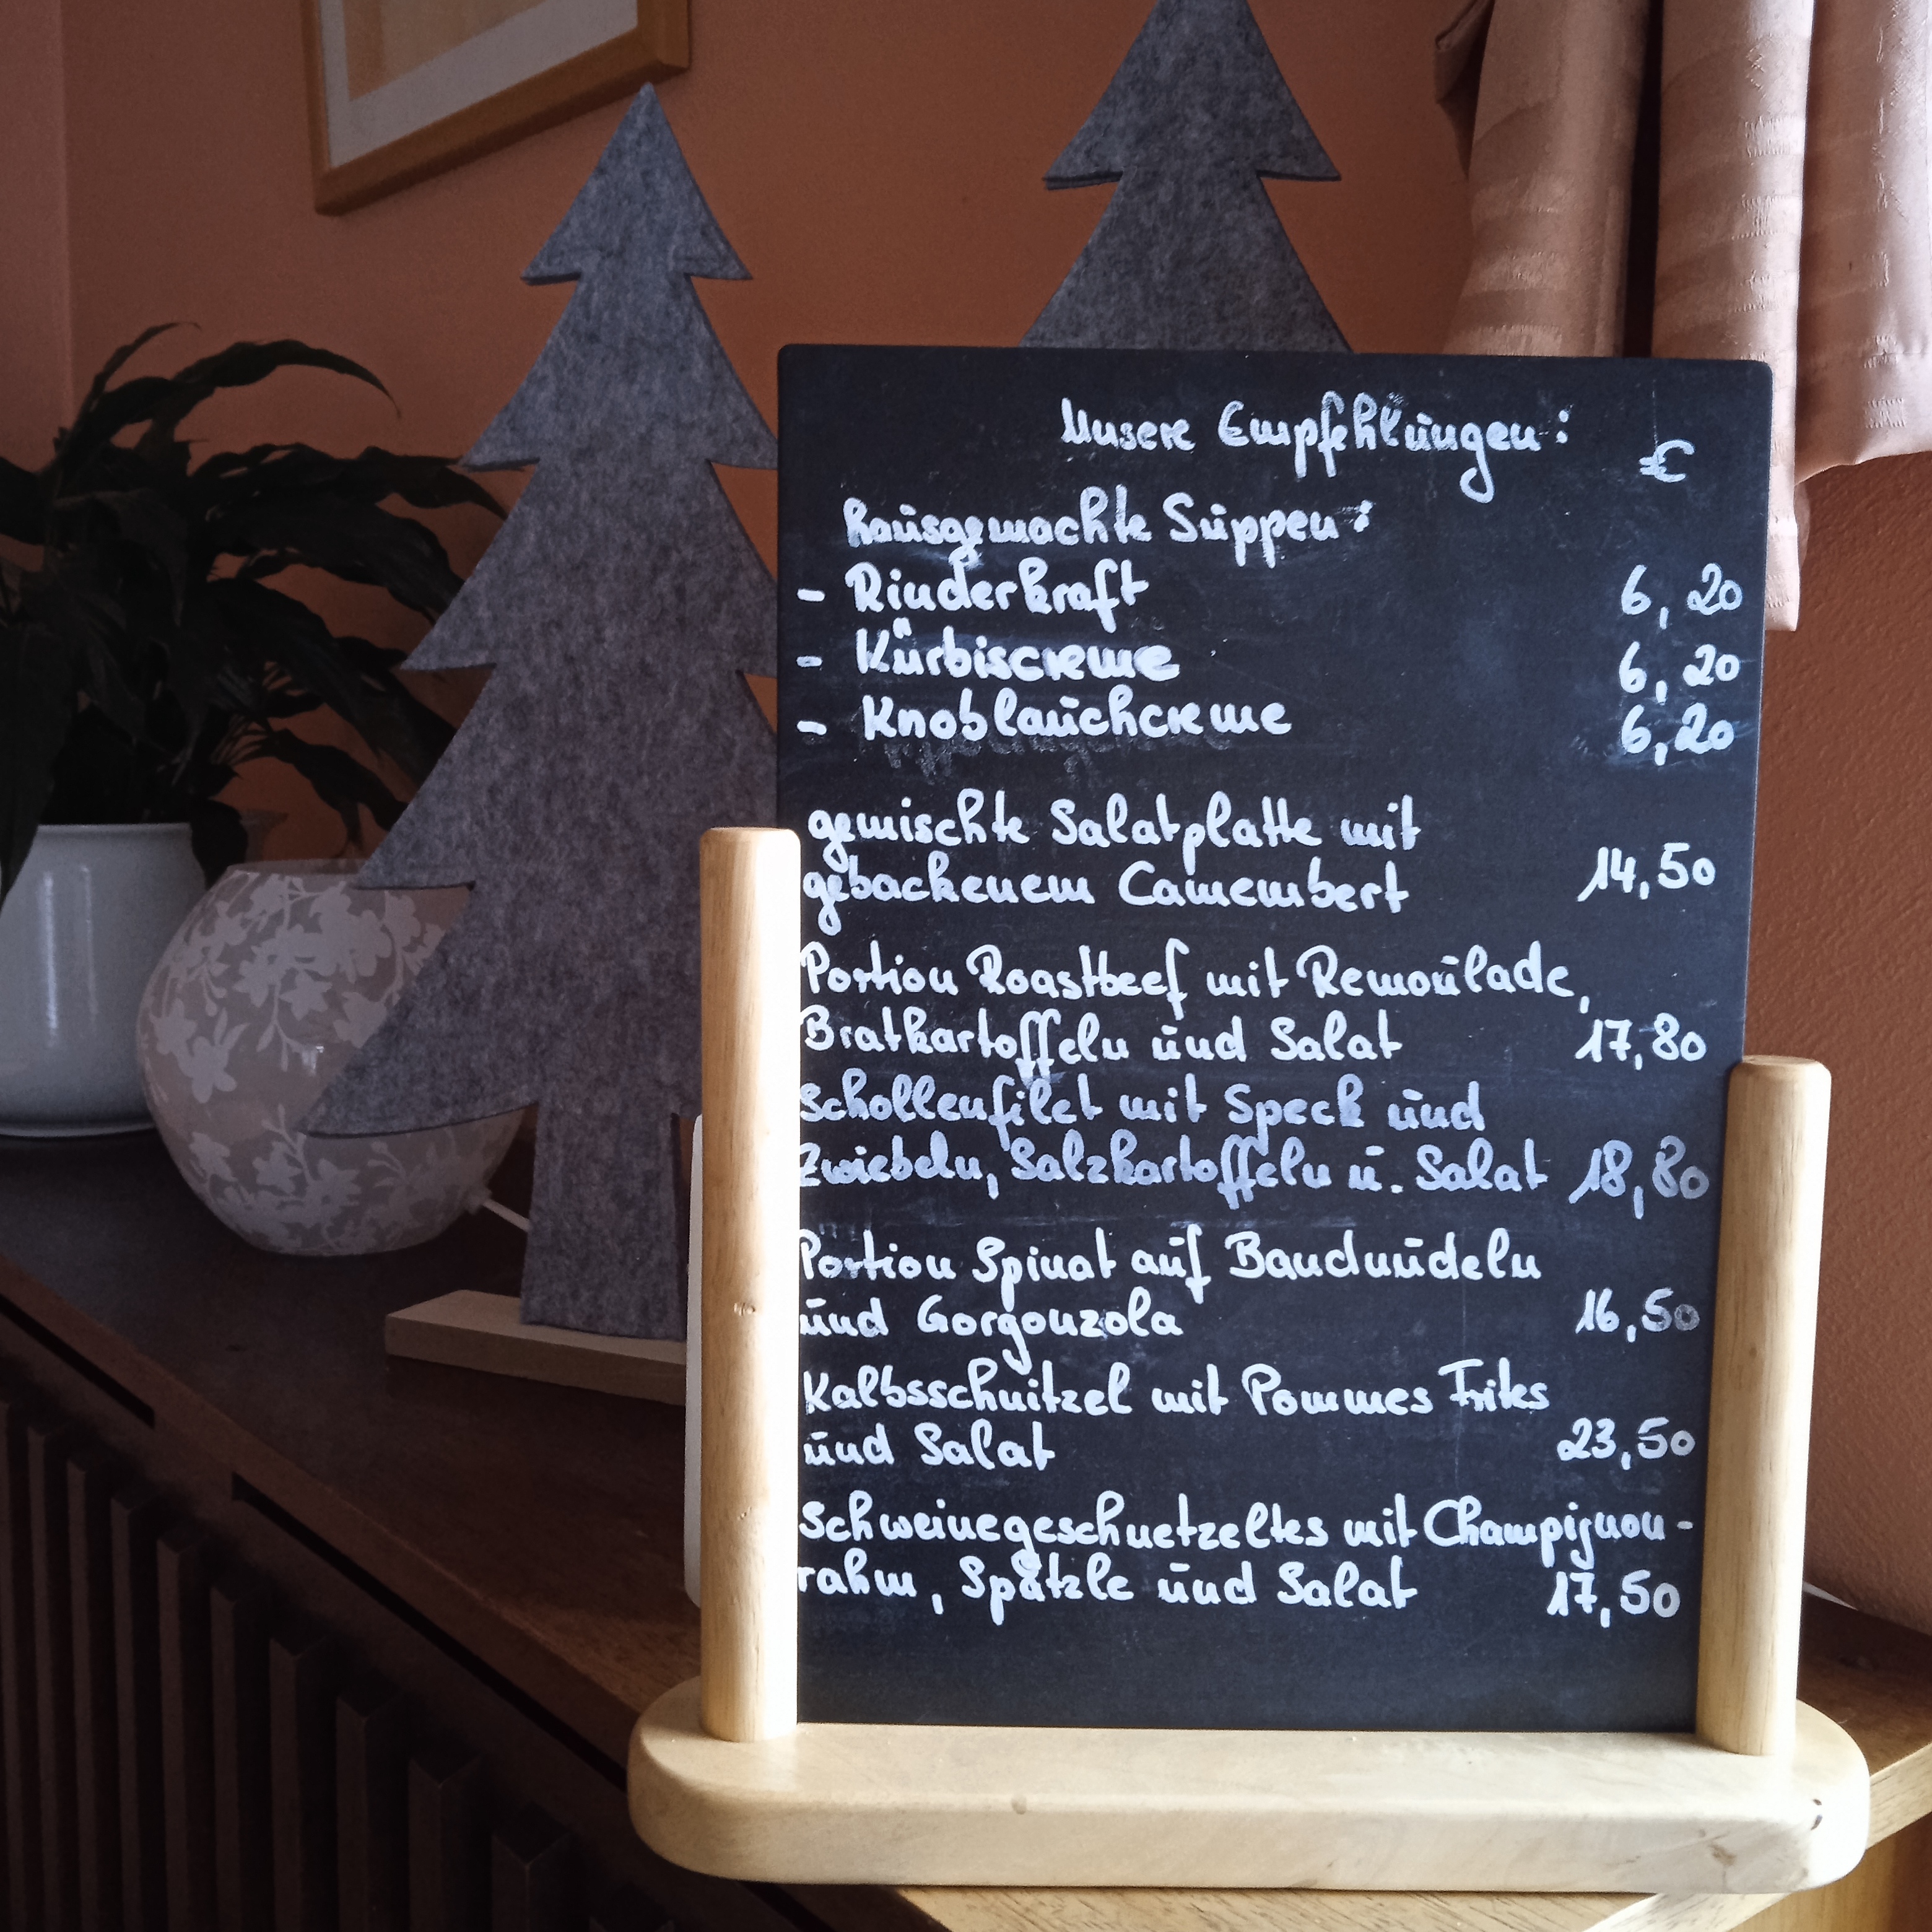 Unsere Empfehlungen:
€
hausgemachte Suppen:
- Rinderkraft 6,20
- Kürbiscreme 6,20
- Knoblauchcreme 6,20
gemischte Salatplatte mit
gebackenem Camembert 14,50
Portion Roastbeef mit Remoulade,
Bratkartoffeln und Salat 17,80
Schollenfilet mit Speck und
Zwiebeln, Salzkartoffeln u. Salat 18,80
Portion Spinat auf Bandnudeln
und Gorgonzola 16,50
Kalbsschnitzel mit Pommes Frites
und Salat 23,50
Schweinegeschnetzeltes mit Champignon-
rahm, Spätzle und Salat 17,50